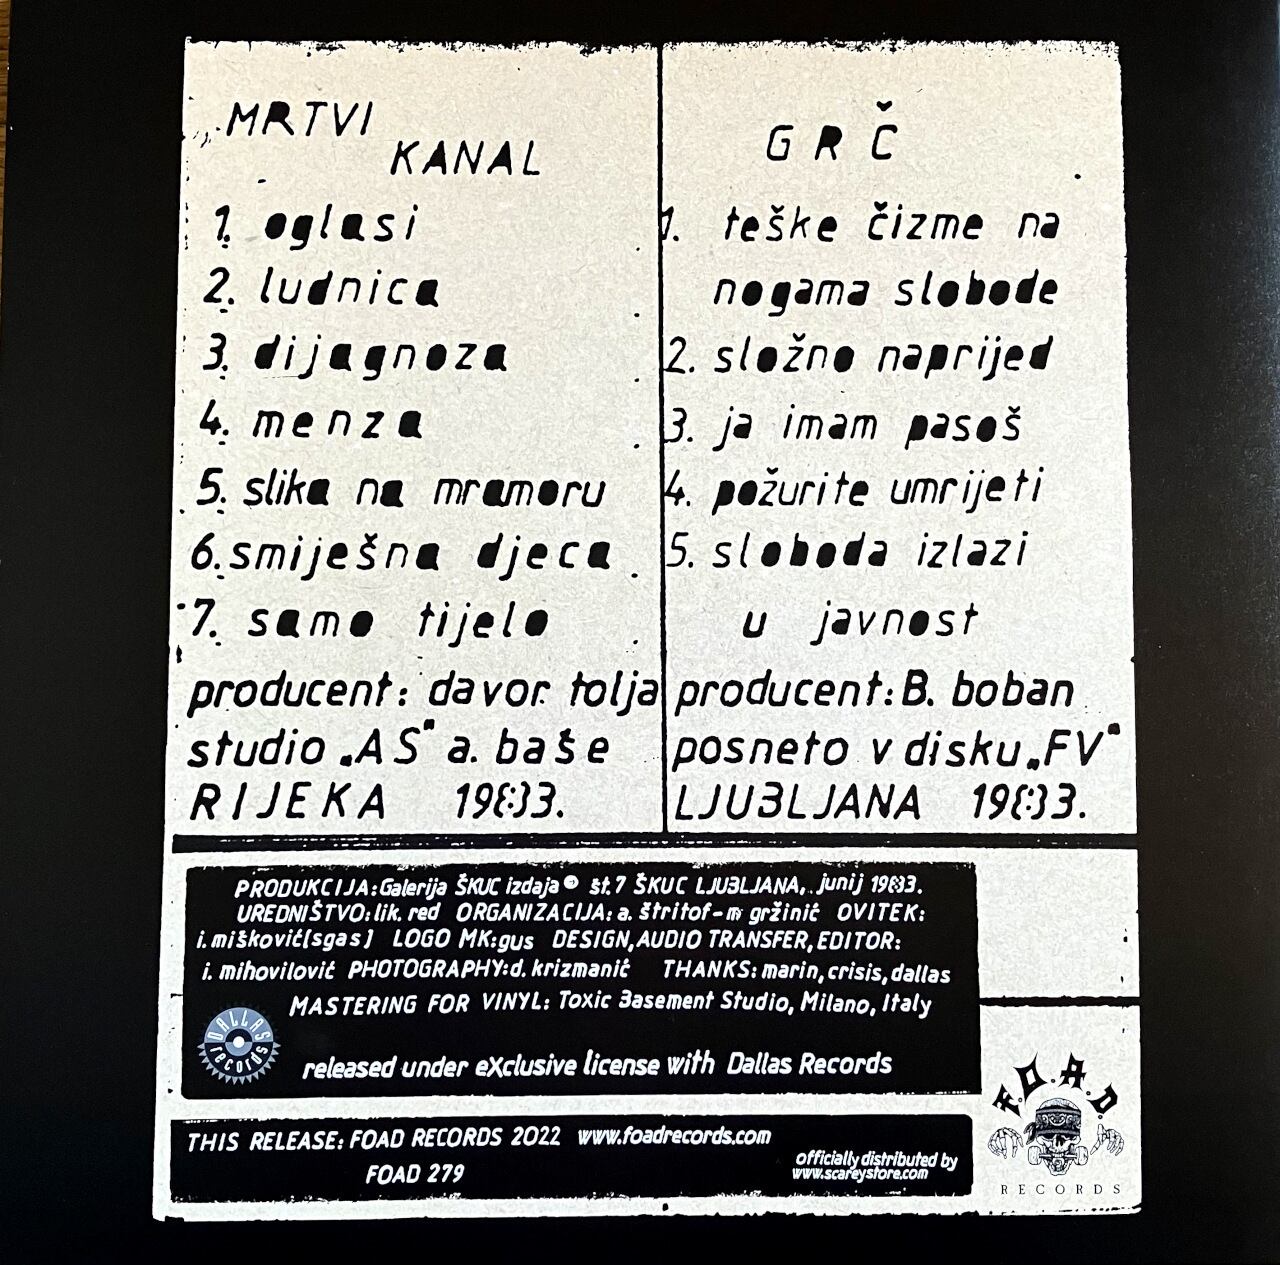 MRTVI
KANAL
1. oglasi
2. ludnica
3. dijagnoza
4. menza
5. slika na mramoru
6. smiješna djeca
7. samo tijelo
producent: davor tolja
studio „AS" a. baše
RIJEKA 1983.
GRČ
1. teške čizme na
nogama slobode
2. složno naprijed
3. ja imam pasoš
4. požurite umrijeti
5. sloboda izlazi
u javnost
producent: B. boban
posneto v disku „FV"
LJUBLJANA 1983.
PRODUKCIJA: Galerija ŠKUC izdaja © št. 7 ŠKUC LJUBLJANA, junij 1983.
UREDNIŠTVO: lik. red ORGANIZACIJA: a. štritof-m gržinić OVITEK:
i. mišković [sgas] LOGO MK: gus DESIGN, AUDIO TRANSFER, EDITOR:
i. mihovilović PHOTOGRAPHY: d. krizmanić THANKS: marin, crisis, dallas
MASTERING FOR VINYL: Toxic Basement Studio, Milano, Italy
DALLAS records
released under eXclusive license with Dallas Records
THIS RELEASE: FOAD RECORDS 2022 www.foadrecords.com
FOAD 279
officially distributed by
www.scareystore.com
F.O.A.D.
RECORDS